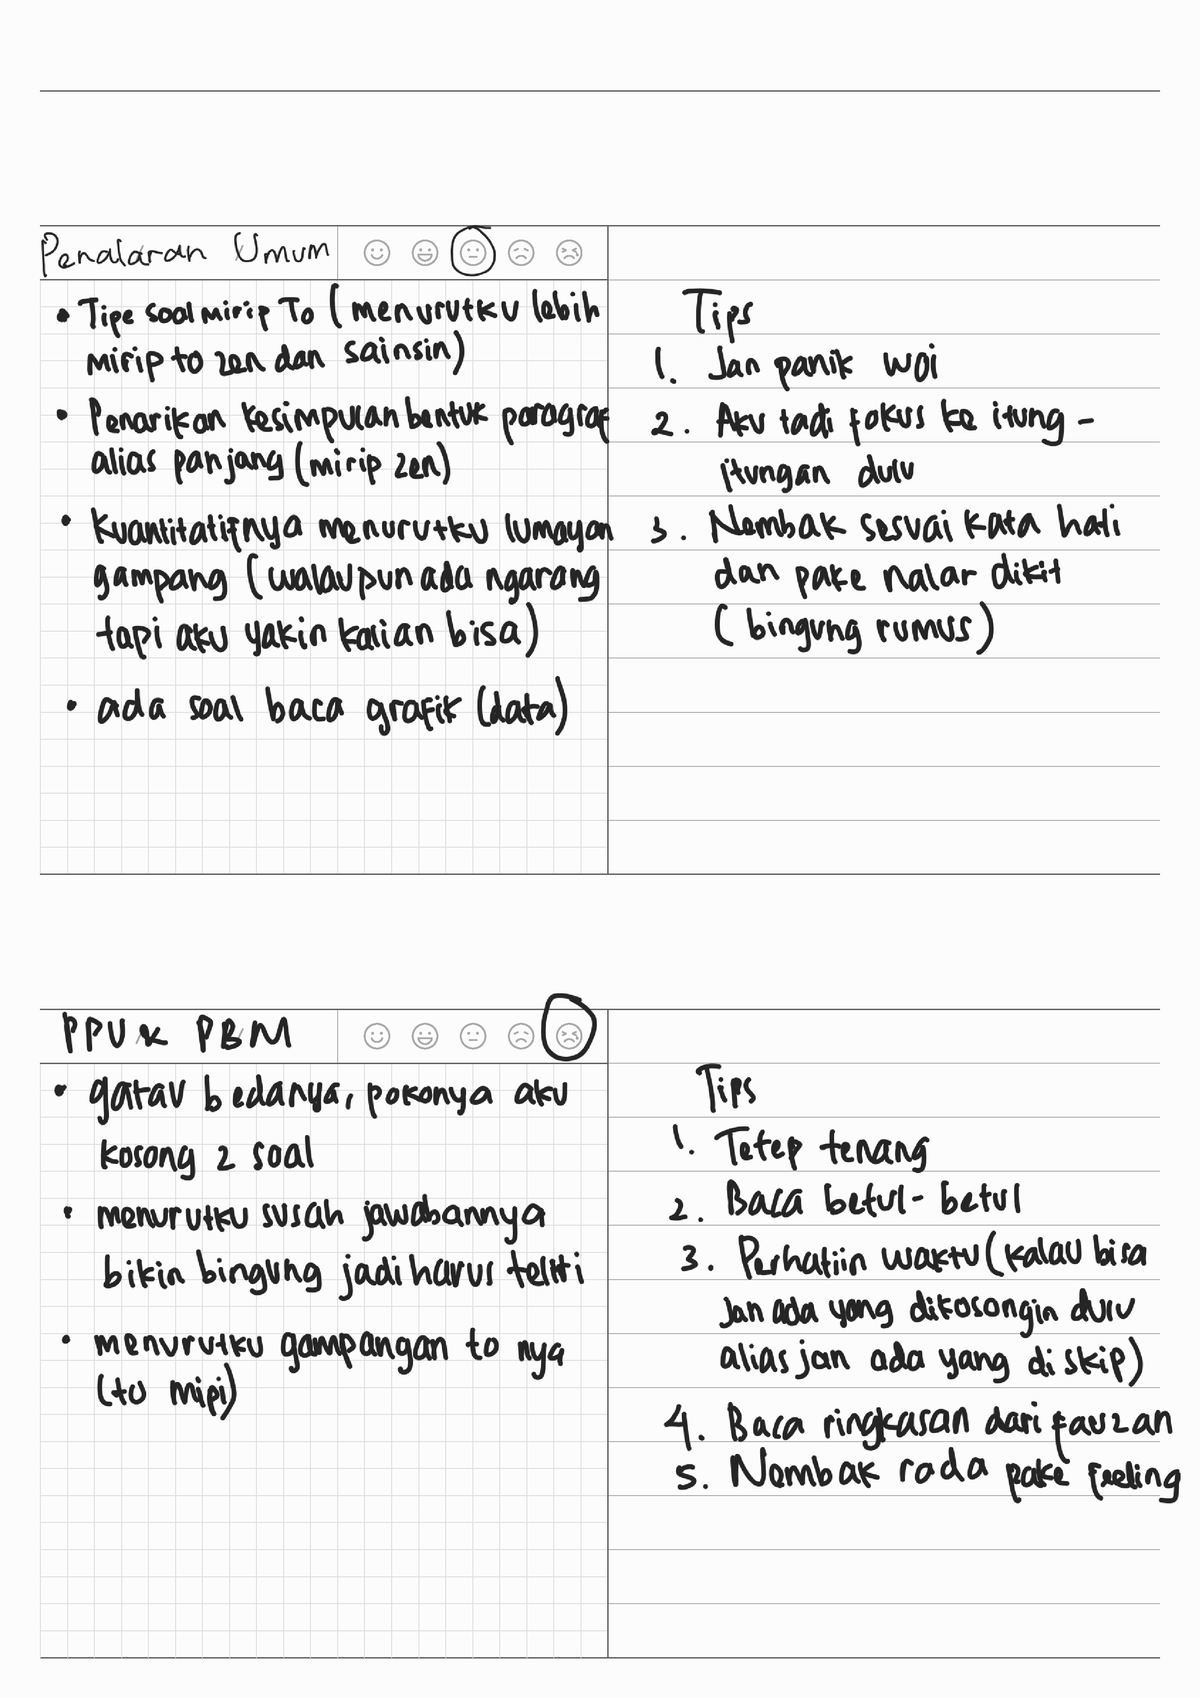 Penalaran Umum
• Tipe soal mirip To (menurutku lebih
mirip to zen dan sainsin)
• Penarikan kesimpulan bentuk paragraf
alias panjang (mirip zen)
• Kuantitatifnya menurutku lumayan
gampang (walaupun ada ngarang
tapi aku yakin kalian bisa)
• ada soal baca grafik (data)
Tips
1. Jan panik woi
2. Aku tadi fokus ke itung-
itungan dulu
3. Nembak sesuai kata hati
dan pake nalar dikit
(bingung rumus)
PPU & PBM
• gatau bedanya, pokonya aku
kosong 2 soal
• menurutku susah jawabannya
bikin bingung jadi harus teliti
• menurutku gampangan to nya
(to mipi)
Tips
1. Tetep tenang
2. Baca betul-betul
3. Perhatiin waktu (kalau bisa
Jan ada yang dikosongin dulu
alias jan ada yang di skip)
4. Baca ringkasan dari fauzan
5. Nembak rada pake feeling